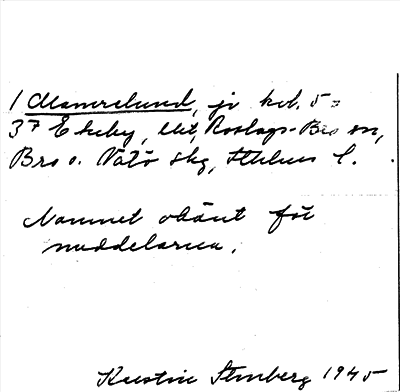 1 Mamrelund, jr kd. 5=
3⁷ Ekeby, Roslags-Bro sn,
Bro o. Vätö skg, Sthlms l.
Namnet okänt för
meddelarna.
Kerstin Stenberg 1945